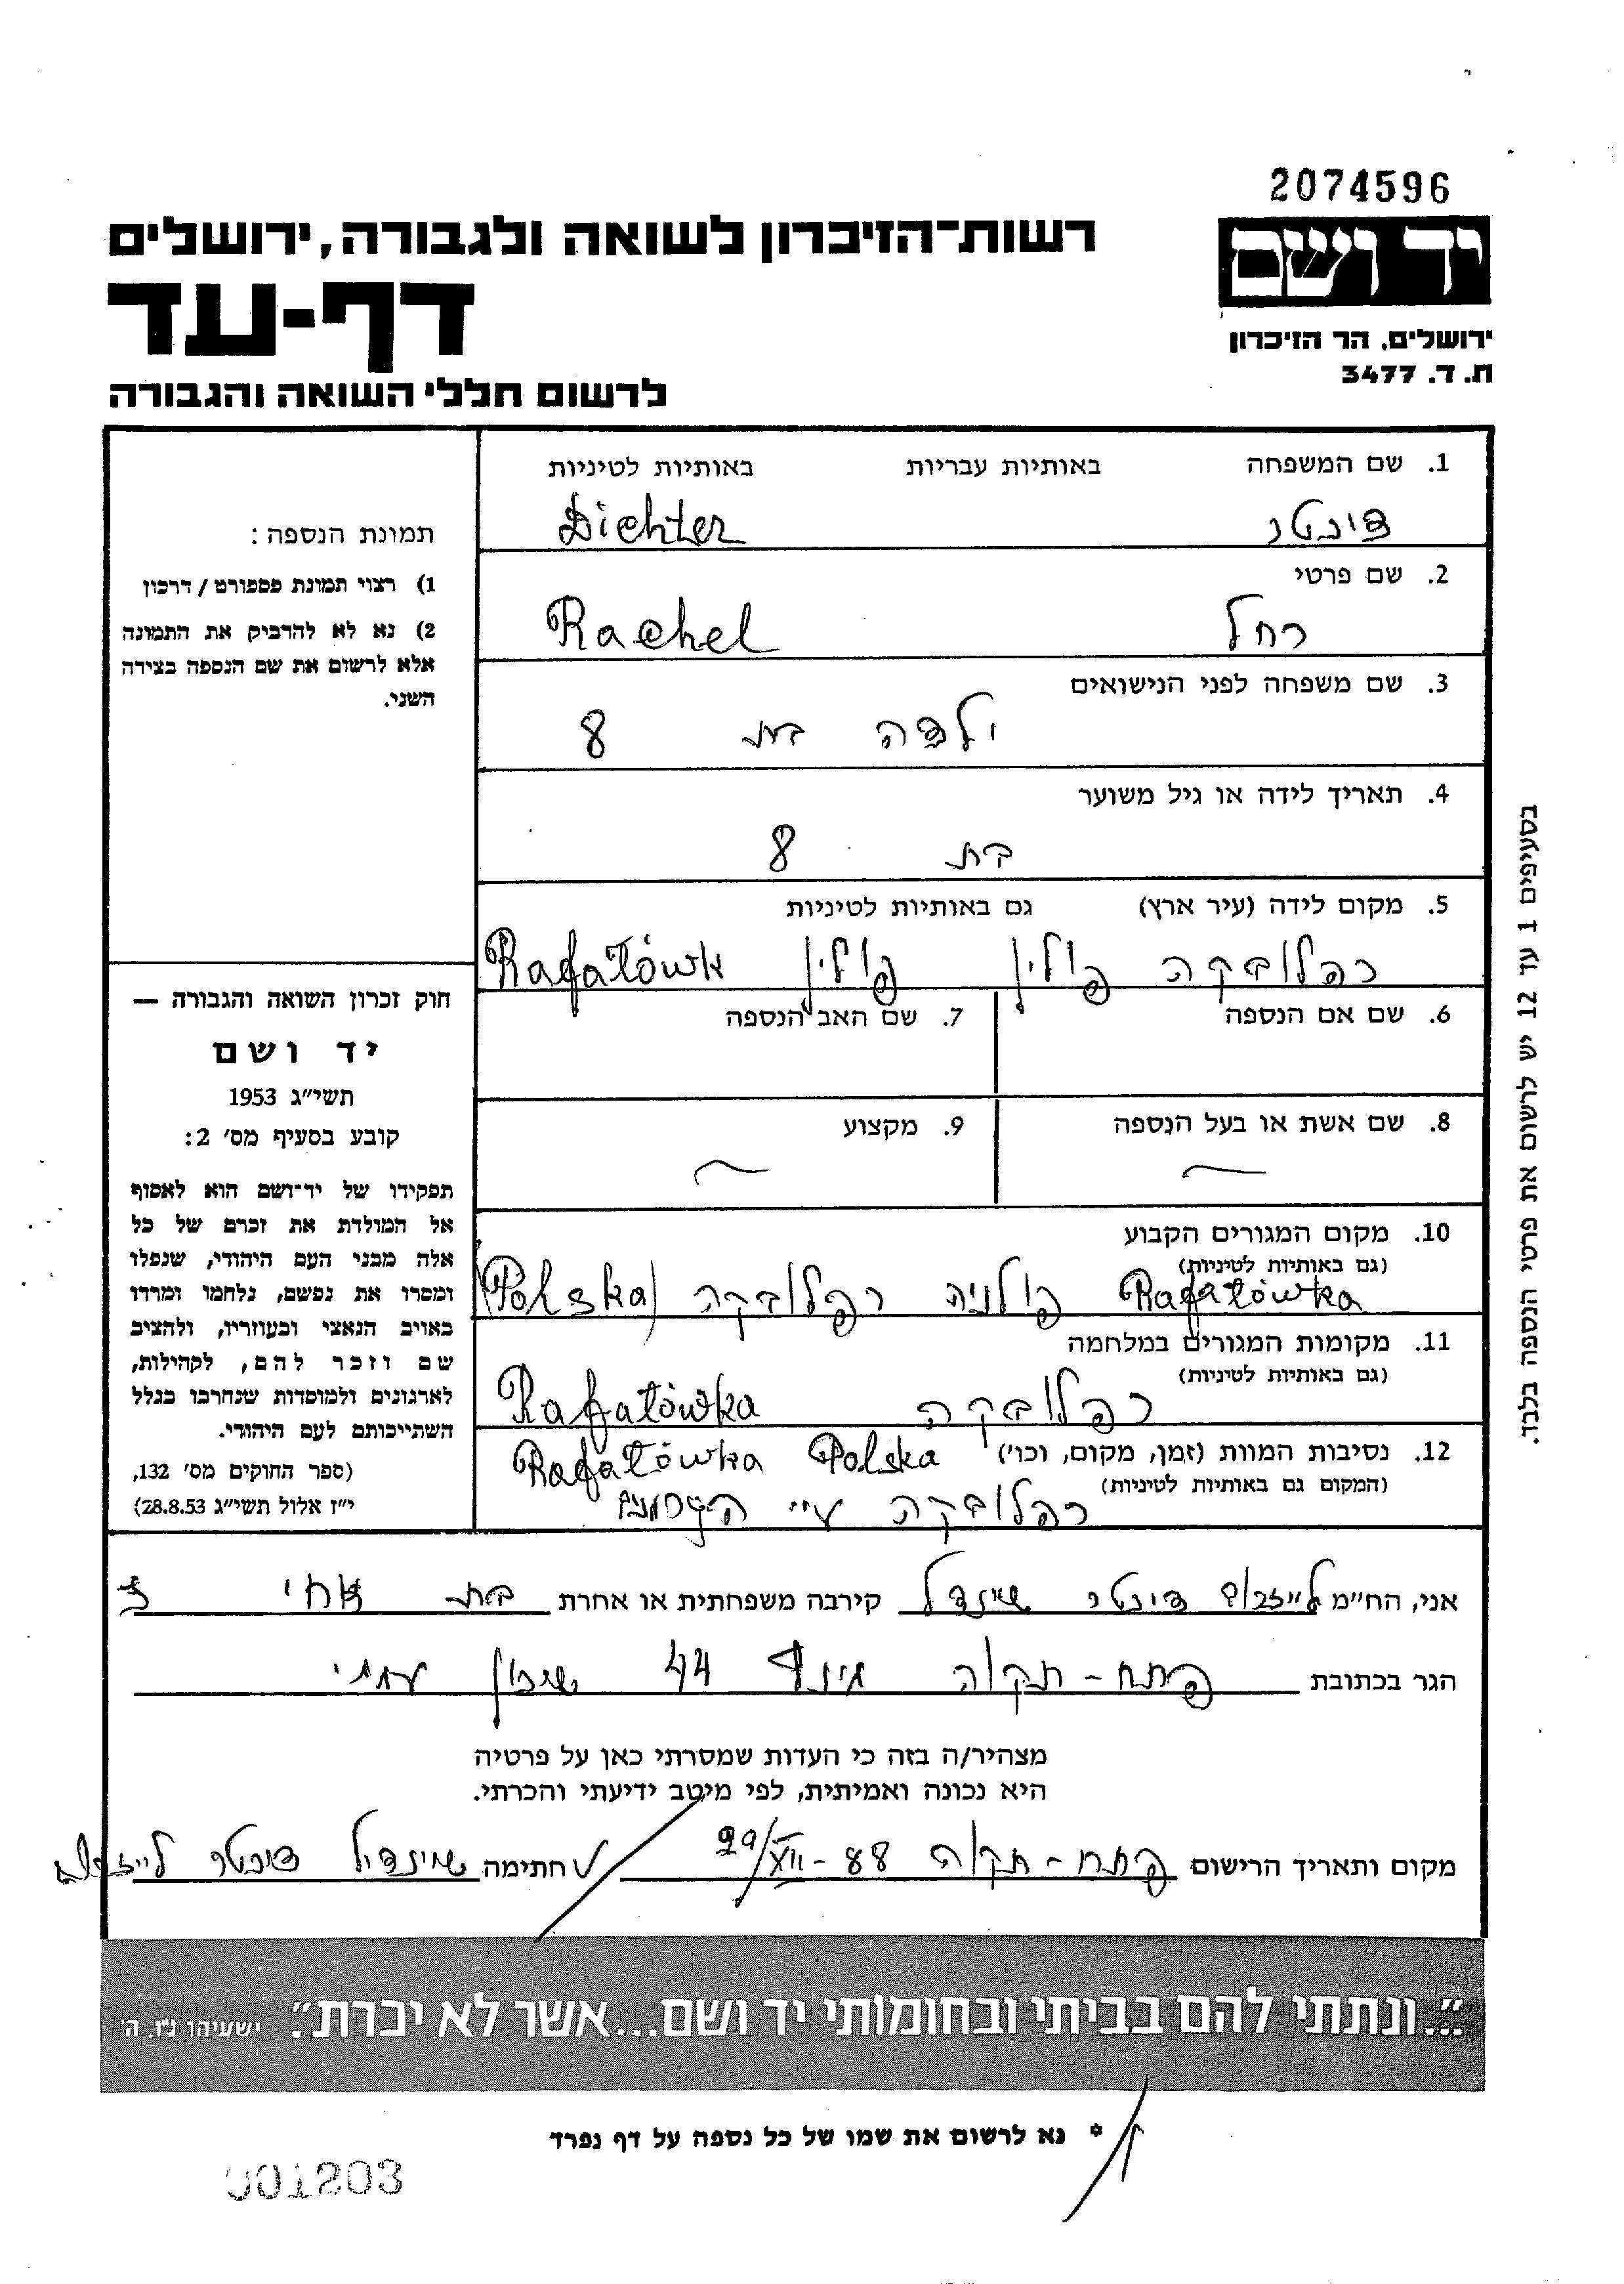 2074596
יד ושם
ירושלים, הר הזיכרון
ת. ד. 3477
רשות-הזיכרון לשואה ולגבורה, ירושלים
דף-עד
לרשום חללי השואה והגבורה
1. שם המשפחה באותיות עבריות באותיות לטיניות
דיכטר Dichter
2. שם פרטי
רחל Rachel
3. שם משפחה לפני הנישואים
ילדה בת 8
4. תאריך לידה או גיל משוער
בת 8
5. מקום לידה (עיר ארץ) גם באותיות לטיניות
רפלובקה פולין פולין Rafałówk
6. שם אם הנספה 7. שם האב הנספה
8. שם אשת או בעל הנספה 9. מקצוע
10. מקום המגורים הקבוע
(גם באותיות לטיניות)
Rafałówka פולניה רפלובקה (Polska)
11. מקומות המגורים במלחמה
(גם באותיות לטיניות)
רפלובקה Rafałówka
12. נסיבות המוות (זמן, מקום, וכו') Rafałówka Polska
(המקום גם באותיות לטיניות)
רפלובקה ע"י
תמונת הנספה:
1) רצוי תמונת פספורט / דרכון
2) נא לא להדביק את התמונה
אלא לרשום את שם הנספה בצידה
השני.
חוק זכרון השואה והגבורה —
יד ושם
תשי"ג 1953
קובע בסעיף מס' 2:
תפקידו של יד-ושם הוא לאסוף
אל המולדת את זכרם של כל
אלה מבני העם היהודי, שנפלו
ומסרו את נפשם, נלחמו ומרדו
באויב הנאצי ובעוזריו, ולהציב
שם וזכר להם, לקהילות,
לארגונים ולמוסדות שנחרבו בגלל
השתייכותם לעם היהודי.
(ספר החוקים מס' 132,
י"ז אלול תשי"ג 28.8.53)
בסעיפים 1 עד 12 יש לרשום את פרטי הנספה בלבד.
אני, הח"מ דיכטר שיינדל קירבה משפחתית או אחרת בת אחי
הגר בכתובת פתח-תקוה 44 שיכון עממי
מצהיר/ה בזה כי העדות שמסרתי כאן על פרטיה
היא נכונה ואמיתית, לפי מיטב ידיעתי והכרתי.
מקום ותאריך הרישום פתח-תקוה 29/XII-88 חתימה שיינדיל דיכטר
"...ונתתי להם בביתי ובחומותי יד ושם...אשר לא יכרת". ישעיהו נ"ו, ה'
* נא לרשום את שמו של כל נספה על דף נפרד
001203